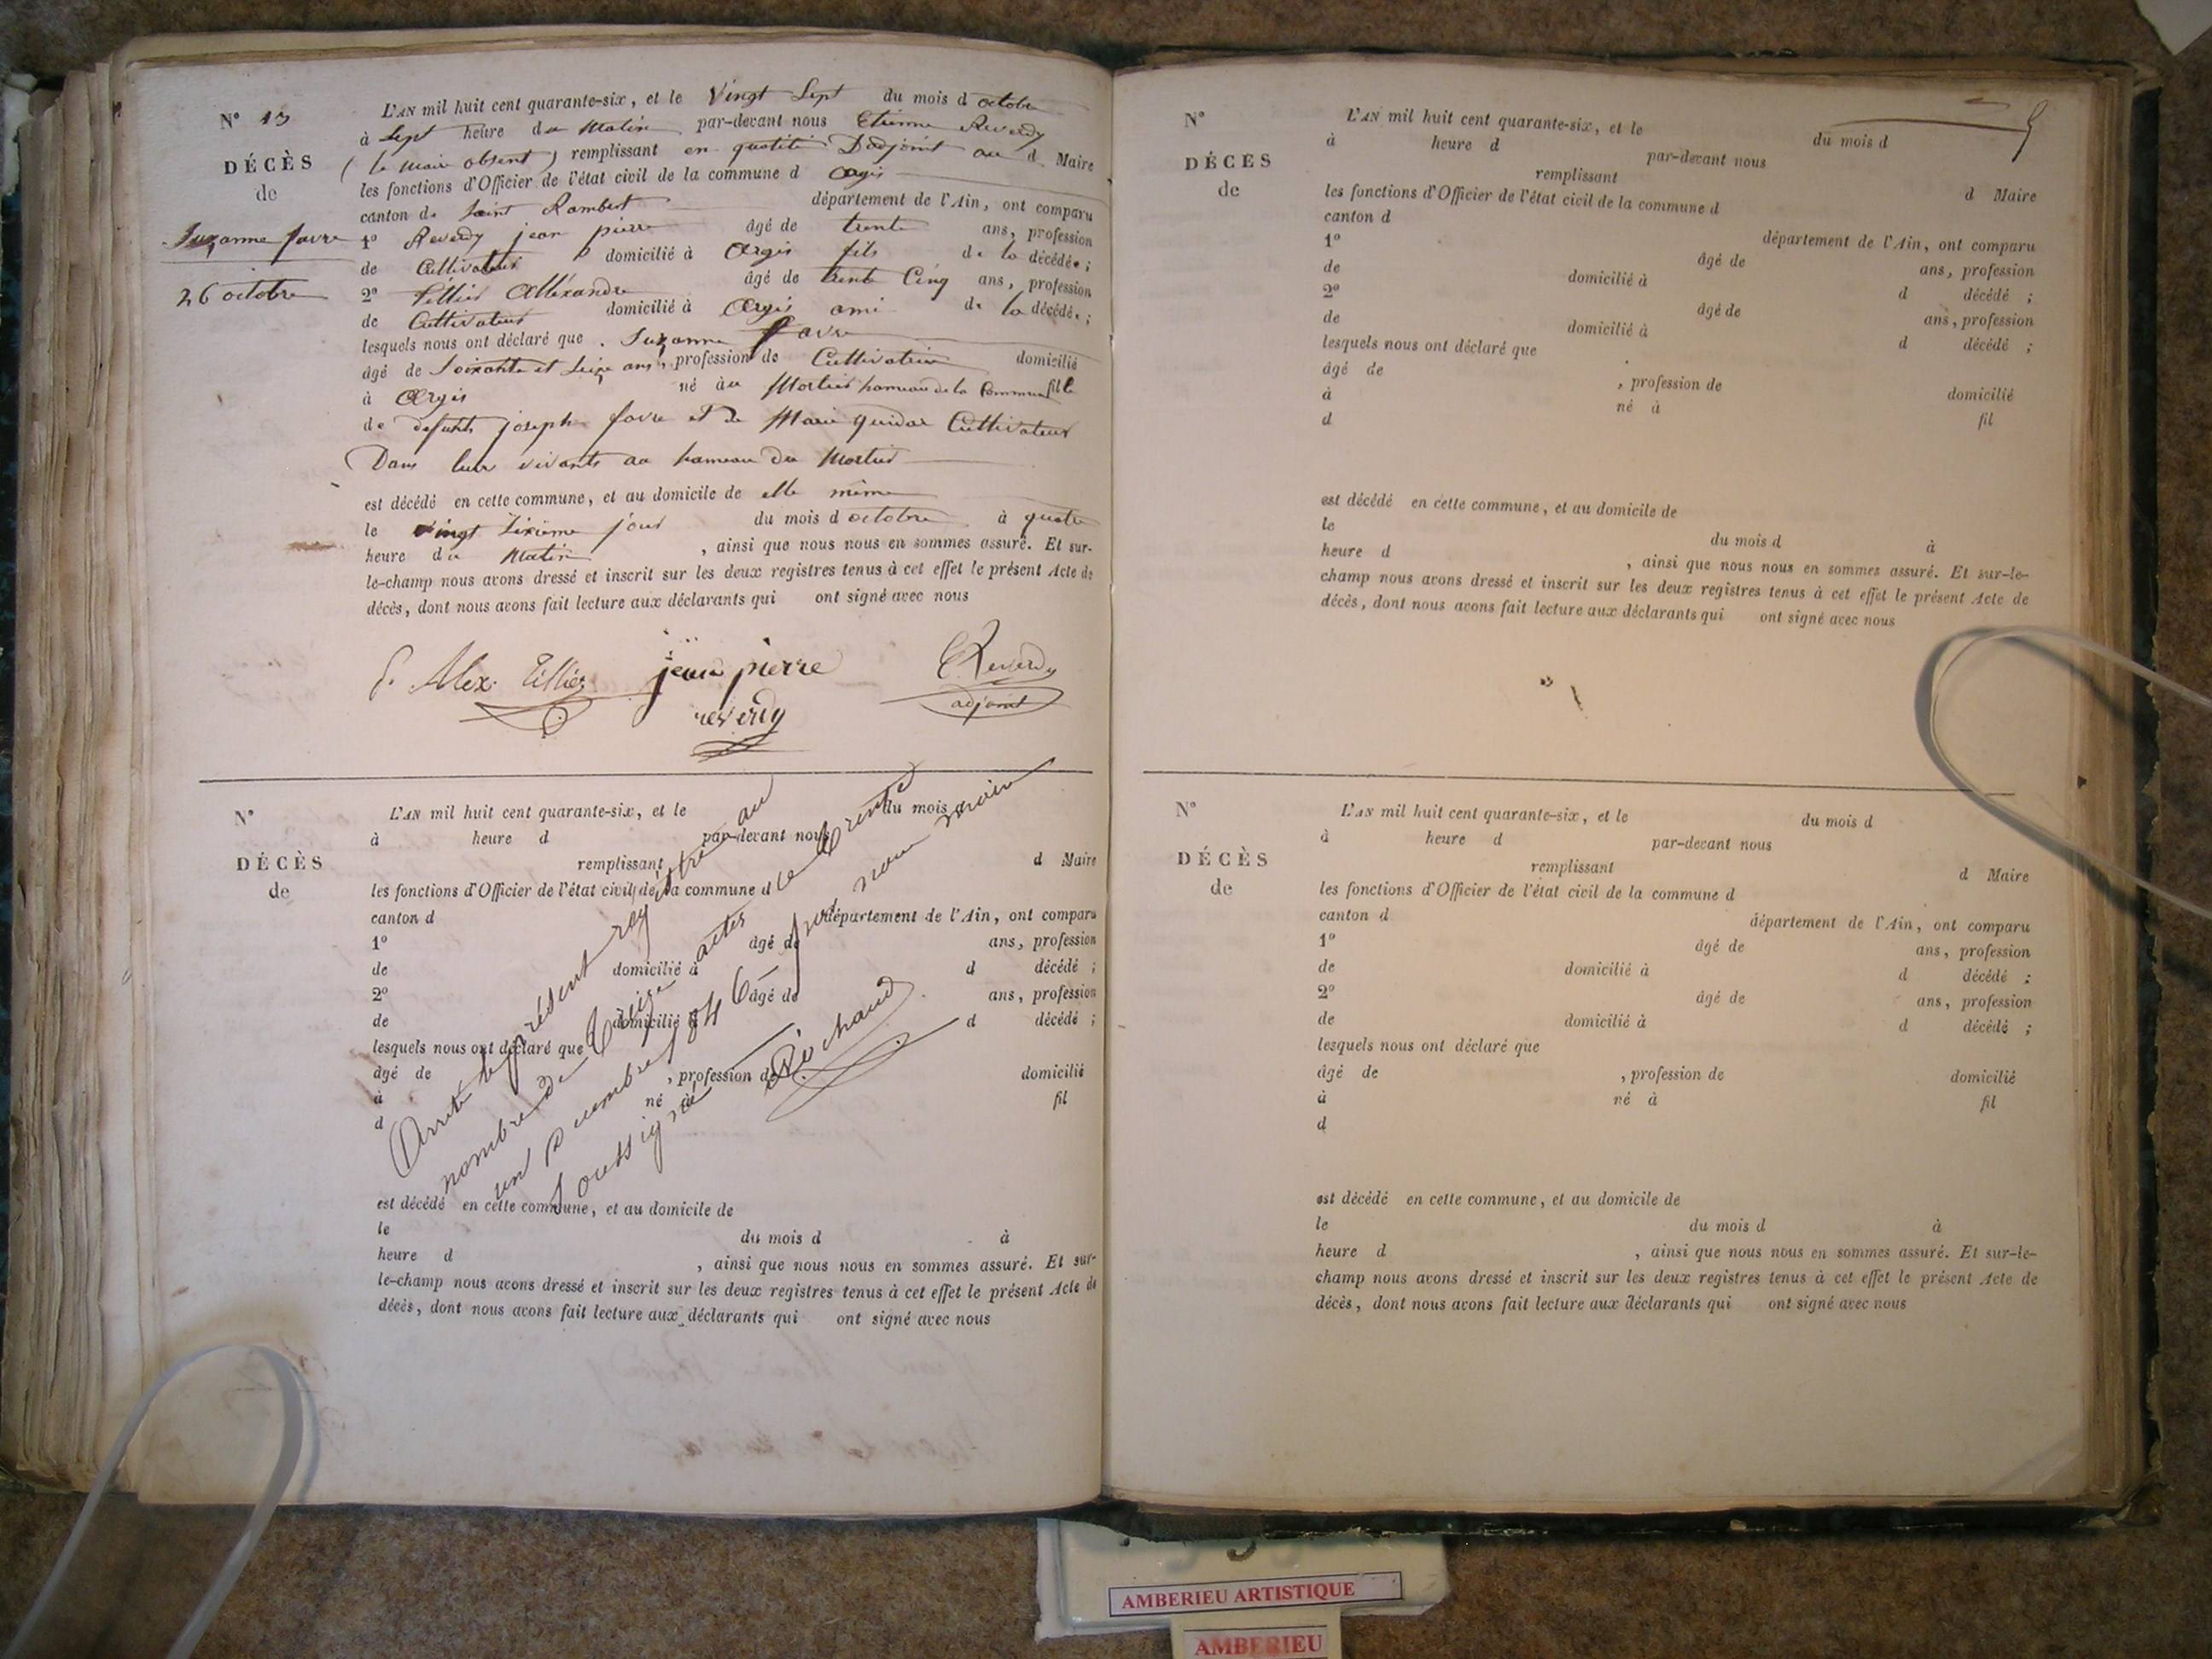 N° 13
DÉCÈS
de
Suzanne favre
26 octobre
L'AN mil huit cent quarante-six, et le Vingt Sept du mois d octobre
à Sept heure du Matin par-devant nous Etienne Reverdy
(le maire absent) remplissant en qualité D'adjoint au d Maire
les fonctions d'Officier de l'état civil de la commune d argis
canton de Saint Rambert département de l'Ain, ont comparu
1° Reverdy jean pierre âgé de trente ans, profession
de Cultivateur domicilié à Argis fils de la décédée ;
2° Tillier Alléxandre âgé de trente Cinq ans, profession
de Cultivateur domicilié à Argis ami de la décédée ;
lesquels nous ont déclaré que Suzanne favre
âgé de Soixante et Seize ans, profession de Cultivateur domicilié
à Argis né au Mortier hameau de la Commune fille
de defunts joseph favre et de Marie guidar Cultivateur
Dans leur vivants au hameau du Mortier
est décédé en cette commune, et au domicile de elle même
le vingt Sixième jour du mois d octobre à quatre
heure du Matin , ainsi que nous nous en sommes assuré. Et sur-
le-champ nous avons dressé et inscrit sur les deux registres tenus à cet effet le présent Acte de
décès, dont nous avons fait lecture aux déclarants qui ont signé avec nous
Alex. Tillier jean pierre reverdy E. Reverdy adjoint
N°
DÉCÈS
de
L'AN mil huit cent quarante-six, et le du mois d
à heure d par-devant nous
remplissant d Maire
les fonctions d'Officier de l'état civil de la commune d
canton d département de l'Ain, ont comparu
1° âgé de ans, profession
de domicilié à d décédé ;
2° âgé de ans, profession
de domicilié à d décédé ;
lesquels nous ont déclaré que
âgé de , profession de domicilié
à né à fil
d
est décédé en cette commune, et au domicile de
le du mois d à
heure d , ainsi que nous nous en sommes assuré. Et sur-
le-champ nous avons dressé et inscrit sur les deux registres tenus à cet effet le présent Acte de
décès, dont nous avons fait lecture aux déclarants qui ont signé avec nous
Arrêté le présent registre au
nombre de treize actes le trente
un Décembre 1846 par nous maire
soussigné Rochaud
N°
DÉCÈS
de
L'AN mil huit cent quarante-six, et le du mois d
à heure d par-devant nous
remplissant d Maire
les fonctions d'Officier de l'état civil de la commune d
canton d département de l'Ain, ont comparu
1° âgé de ans, profession
de domicilié à d décédé ;
2° âgé de ans, profession
de domicilié à d décédé ;
lesquels nous ont déclaré que
âgé de , profession de domicilié
à né à fil
d
est décédé en cette commune, et au domicile de
le du mois d à
heure d , ainsi que nous nous en sommes assuré. Et sur-le-
champ nous avons dressé et inscrit sur les deux registres tenus à cet effet le présent Acte de
décès, dont nous avons fait lecture aux déclarants qui ont signé avec nous
N°
DÉCÈS
de
L'AN mil huit cent quarante-six, et le du mois d
à heure d par-devant nous
remplissant d Maire
les fonctions d'Officier de l'état civil de la commune d
canton d département de l'Ain, ont comparu
1° âgé de ans, profession
de domicilié à d décédé ;
2° âgé de ans, profession
de domicilié à d décédé ;
lesquels nous ont déclaré que
âgé de , profession de domicilié
à né à fil
d
est décédé en cette commune, et au domicile de
le du mois d à
heure d , ainsi que nous nous en sommes assuré. Et sur-le-
champ nous avons dressé et inscrit sur les deux registres tenus à cet effet le présent Acte de
décès, dont nous avons fait lecture aux déclarants qui ont signé avec nous
AMBERIEU ARTISTIQUE
AMBERIEU